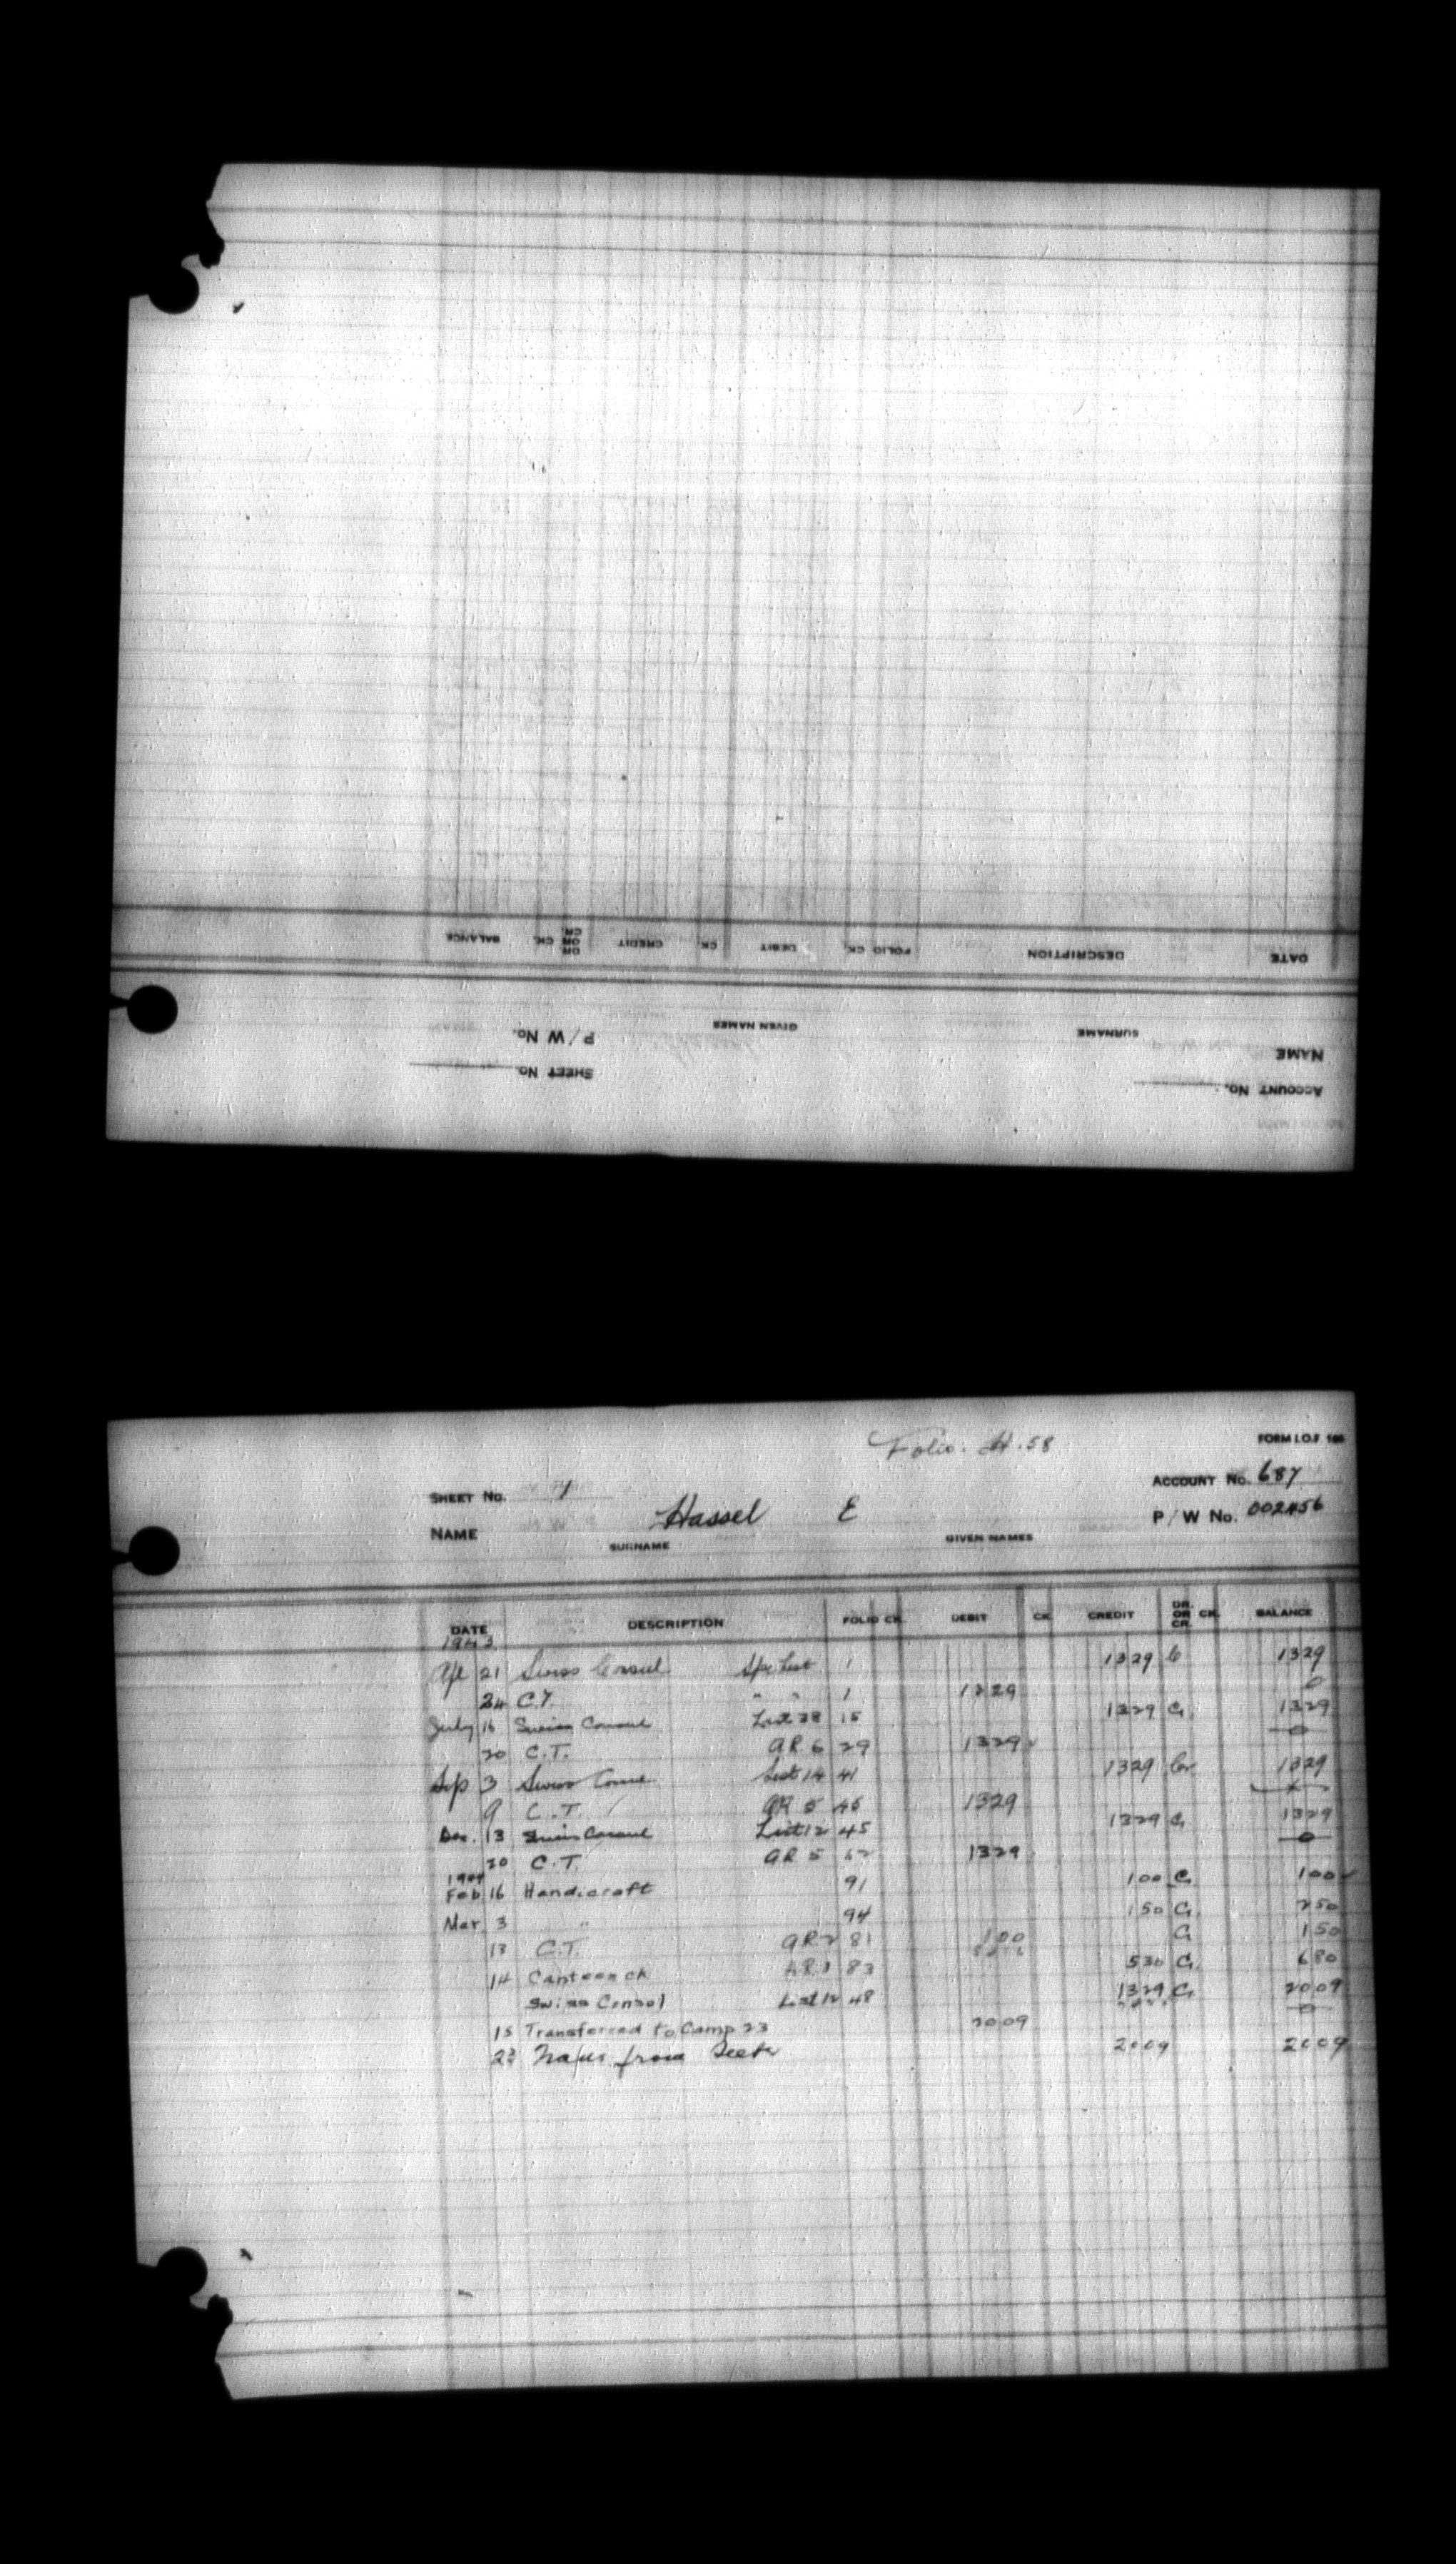 DATE DESCRIPTION FOLIO CK. DEBIT CK. CREDIT DR. OR CR. CK. BALANCE
SURNAME GIVEN NAMES
NAME P/W No.
ACCOUNT No. SHEET No.
Folio. H.58
FORM I.O.F. 166
SHEET No. 1 ACCOUNT No. 687
NAME Hassel E P/W No.
SURNAME GIVEN NAMES
DATE DESCRIPTION FOLIO CK. DEBIT CK. CREDIT DR. OR CR. CK. BALANCE
1943
Apl 21 Swiss Consul List 1 1329 Cr 1329
24 C.T. " " 1 1329 0
July 16 Swiss Consul List 28 15 1329 Cr 1329
20 C.T. AR 6 29 1329 0
Sep 3 Swiss Consul List 14 41 1329 Cr 1329
9 C.T. AR 5 1329
Dec. 13 Swiss Consul List 12 45 1329 Cr 1329
20 C.T. AR 5 1329 0
1944
Feb 16 Handicraft 91 100 Cr 100
Mar. 3 " 94 150 Cr 250
13 C.T. AR 2 81 100 Cr 150
14 Canteen ch 83 530 Cr 680
Swiss Consol List 12 48 1329 Cr 2009
15 Transferred to Camp 23 2009 0
23 from 2009 2009